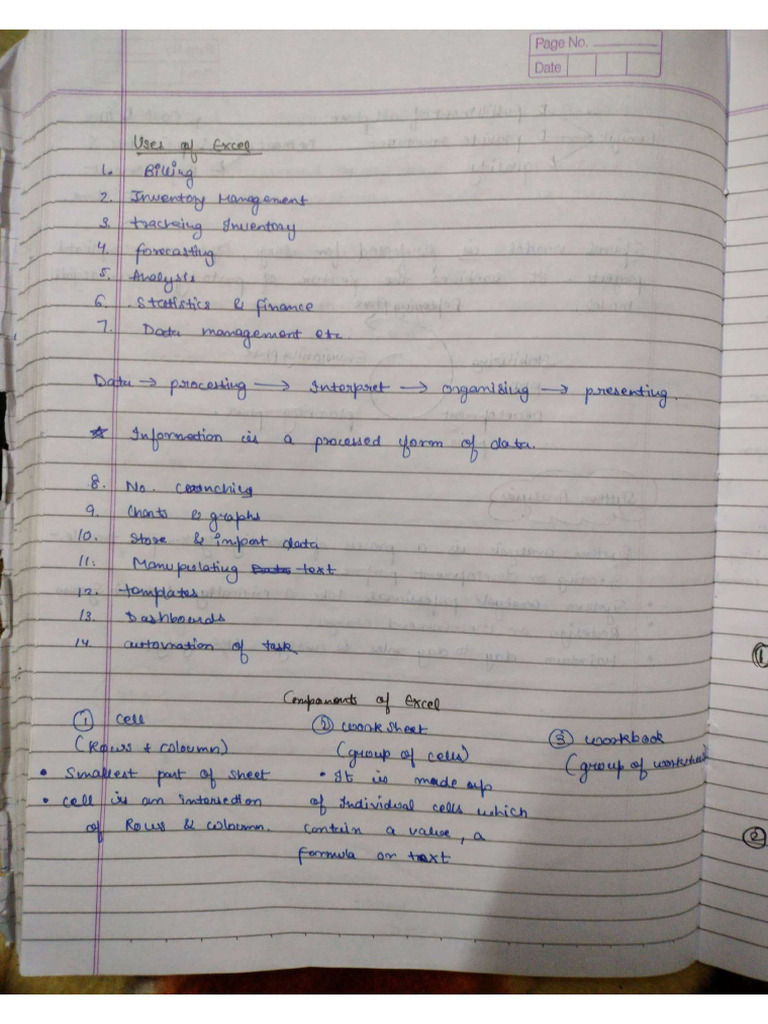 Page No.
Date
Uses of Excel
1. Billing
2. Inventory Management
3. tracking Inventory
4. forecasting
5. Analysis
6. Statistics & finance
7. Data management etc.
Data → processing → Interpret → organising → presenting.
☆ Information is a processed form of data.
8. No. crunching
9. Charts & graphs
10. Store & import data
11. Manupulating text
12. templates
13. Dashboards
14. automation of task
Components of Excel
① Cell
(Rows & coloumn)
• Smallest part of sheet
• Cell is an intersection
of Rows & coloumn.
② worksheet
(group of cells)
• It is made up
of Individual cells which
contain a value, a
formula or text
③ workbook
(group of worksheet)
①
②